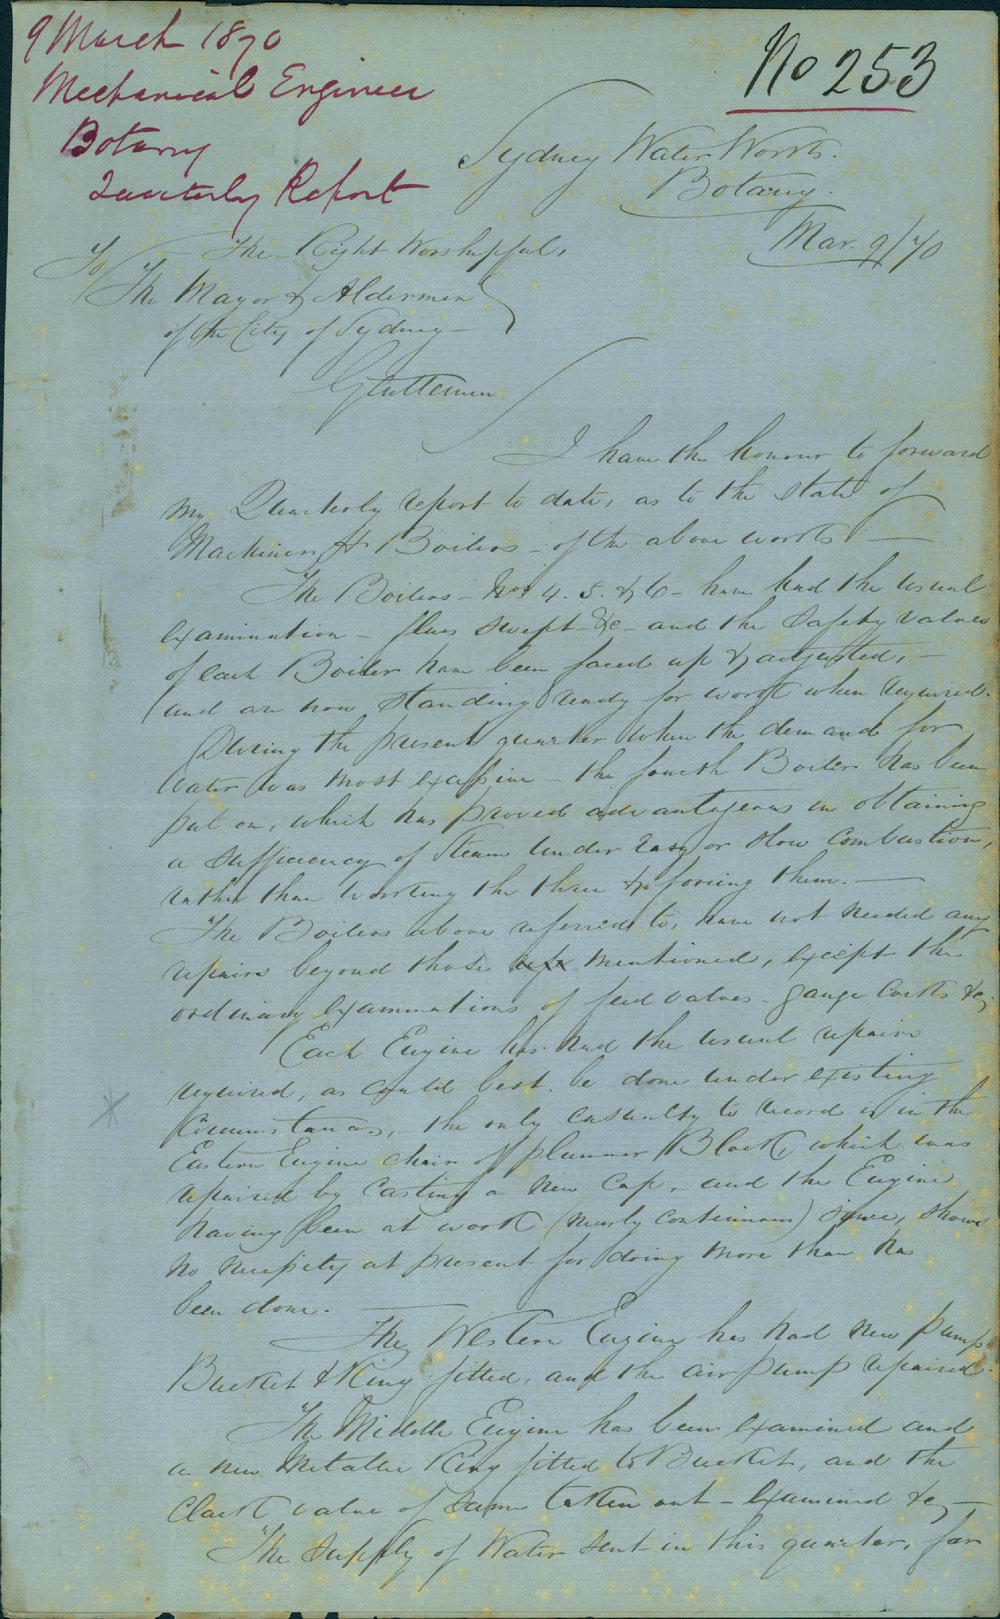 9 March 1870
Mechanical Engineer
Botany
Quarterly Report
No 253
Sydney Water Works.
Botany.
Mar. 9/70
To The Right Worshipful,
The Mayor & Aldermen
of the City of Sydney —
Gentlemen
I have the honour to forward
my Quarterly report to date, as to the state of
Machinery & Boilers - of the above works —
The Boilers - Nos 4. 5. & 6 - have had the usual
examination - flues swept &c - and the Safety valves
of each Boiler have been faced up & adjusted, -
and are now standing ready for work when required.
During the present quarter when the demand for
Water was most excessive - the fourth Boiler has been
put on, which has proved advantageous in obtaining
a sufficiency of Steam under easy or slow Combustion,
rather than working the three & forcing them. —
The Boilers above referred to, have not needed any
repairs beyond those mentioned, except the
ordinary examinations of feed valves - gauge Cocks &c;
Each Engine has had the usual repairs
required, as could best be done under existing
Circumstances, - the only casualty to record is in the
Eastern Engine chair of plummer Block, which was
repaired by Casting a new Cap, and the Engine
having been at work (nearly continuous) since, shows
no necessity at present for doing more than has
been done.
The Western Engine has had new pump
Bucket & Ring fitted, and the air pump repaired.
The Middle Engine has been examined and
a new Metallic Ring fitted to Bucket, and the
Clack valve of same taken out - examined &c —
The supply of Water sent in this quarter, far